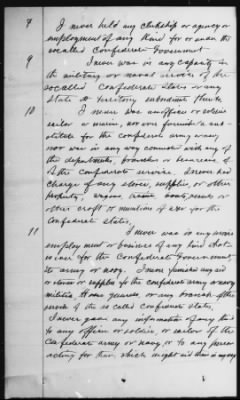 7 I never held any clerkship or agency or
employment of any kind for or under the
socalled Confederate Government
9 I never was in any capacity in
the military or naval service of the
socalled Confederate States or any
State or Territory subordinate thereto.
10 I never was an officer or soldier
sailor or marine, nor ever furnished a sub-
stitute for the confederate army or navy,
nor was in any way connected with any of
the departments, branches or bureaus of
the confederate service. I never had
charge of any stores, supplies, or other
property, wagons, boats or
other craft or munitions of war for the
Confederate states,
11 I never was in any
employment or business of any kind what-
soever for the Confederate Government,
its army or navy. I never furnished any aid
or stores or supplies for the confederate army or navy
militia Home guards, or any branch of the
service of the so called confederate states,
I never gave any information of any kind
to any officer or soldier, or sailor of the
Confederate army or navy, or to any person
acting for them which might aid them in any way